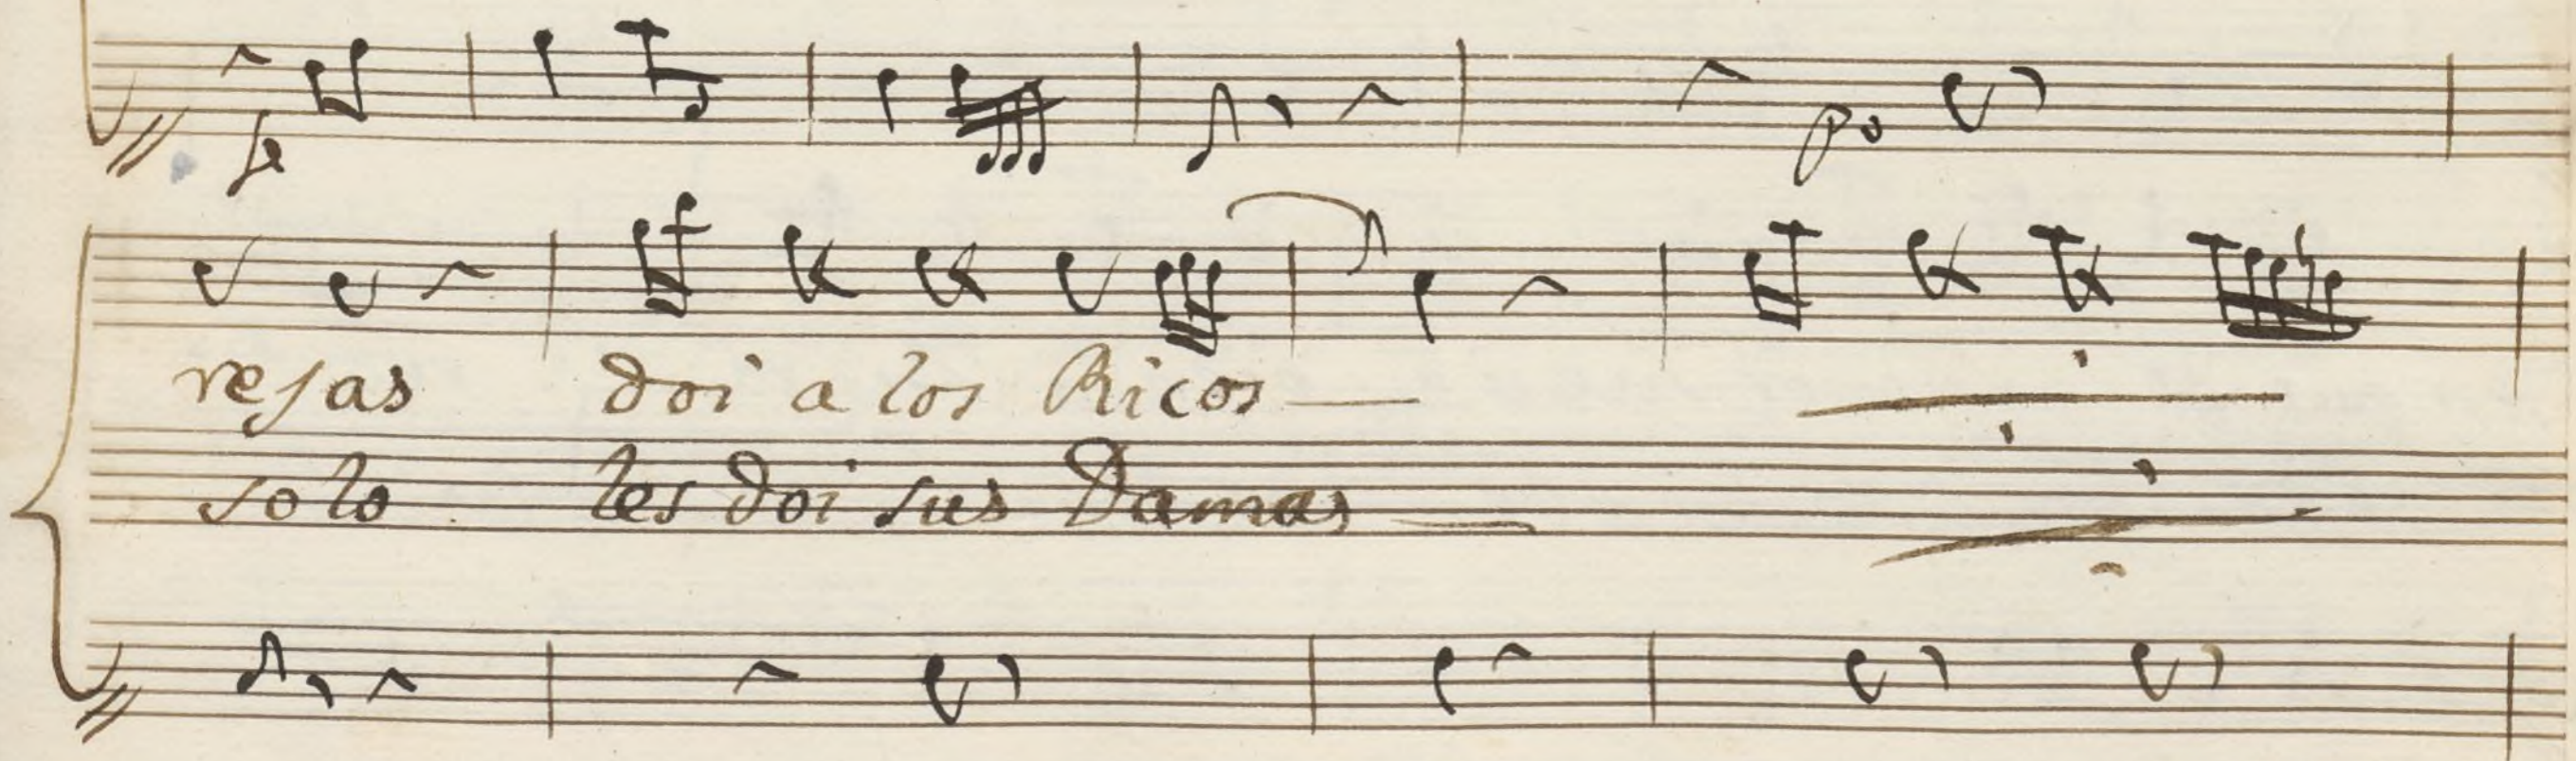 fe po
rejas doi a los Ricos
solo les doi sus Damas